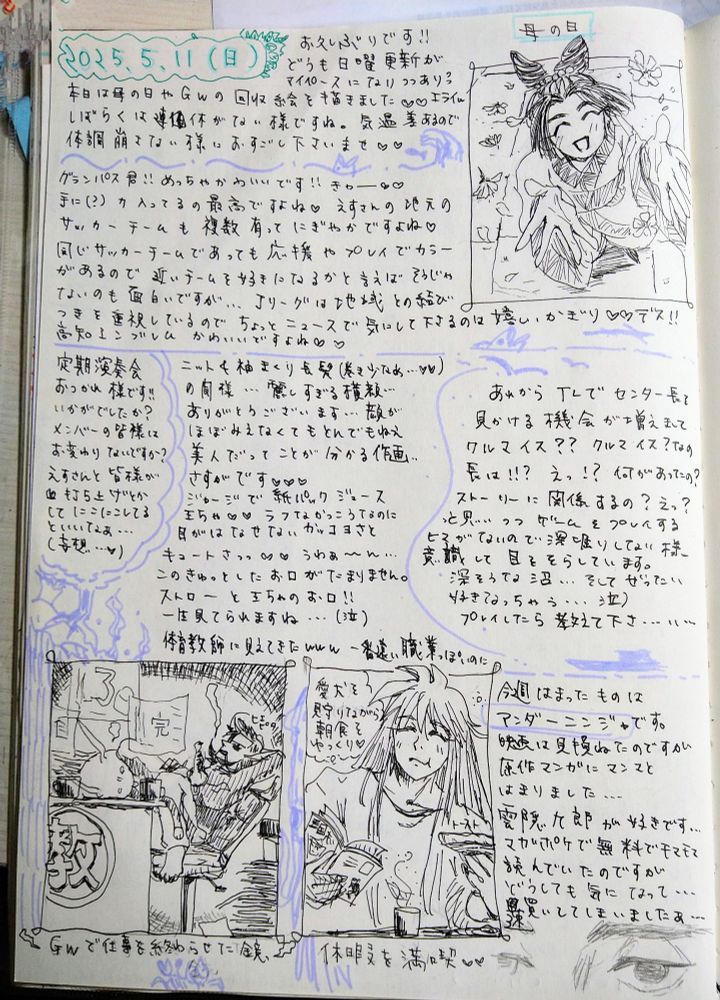 2025.5.11(日)
お久しぶりです!!
どうも日曜更新が
マイペースになりつつある?
本日は母の日やGWの回収絵を描きました♡♡
しばらくは連休がない様ですね。気温差あるので
体調崩さない様におすごし下さいませ♡♡
母の日
グランパス君!!めっちゃかわいいです!!きゃー♡♡
手に(?)力入ってるの最高ですよね♡えすさんの地元の
サッカーチームも複数有ってにぎやかですよね♡
同じサッカーチームであっても応援やプレイでカラー
があるので近いチームを好きになるかと言えばそうじゃ
ないのも面白いですが…Jリーグは地域との結び
つきを重視しているのでちょっとニュースで気にして下さるのは嬉しいかぎり♡♡デス!!
高知エンブレムかわいいですよね♡♡
定期演奏会
おつかれ様です!!
いかがでしたか?
メンバーの皆様は
お変わりないですか?
えすさんと皆様が
打ち上げとか
してにこにこしてる
といいなぁ…
(妄想…♡)
ニット&袖まくり長髪(巻き少なぁ…♡♡)
の間様…麗しすぎる横顔…
ありがとうございます…顔が
ほぼみえなくてもとんでもねえ
美人だってことが分かる作画…
さすがです♡♡♡
ジャージで紙パックジュース
王ちゃ♡♡ラフなかっこうなのに
目がはなせないカッコヨさと
キュートさっっ♡♡うわぁ〜ん…
このきゅっとしたお口がたまりません。
ストローと王ちゃのお口!!
一生見てられますね…(泣)
体育教師に見えてきたwww 一番遠い職業っぽいのに
あれからTLでセンター長を
見かける機会が増えまして
クルマイス??クルマイス?なの
長は!!?えっ!?何があったの?
ストーリーに関係するの?えっ?
と思いつつゲームをプレイする
ヒマがないので深堀りしない様
意識して目をそらしています。
深そうな沼…そしてぜったい
好きになっちゃう…泣)
プレイしたら教えて下さ…い…
完
教
GWで仕事を終わらせた鏡
愛犬を
貯りながら
朝食を
ゆっくり♡
トースト
休暇を満喫♡♡
今週はまったものは
アンダーニンジャです。
映画は見損ねたのですが
原作マンガにマンマと
はまりました…
雲隠九郎が好きです…
マガポケで無料でモマモマ
読んでいたのですが
どうしても気になって…
買いしてしまいましたぁ…